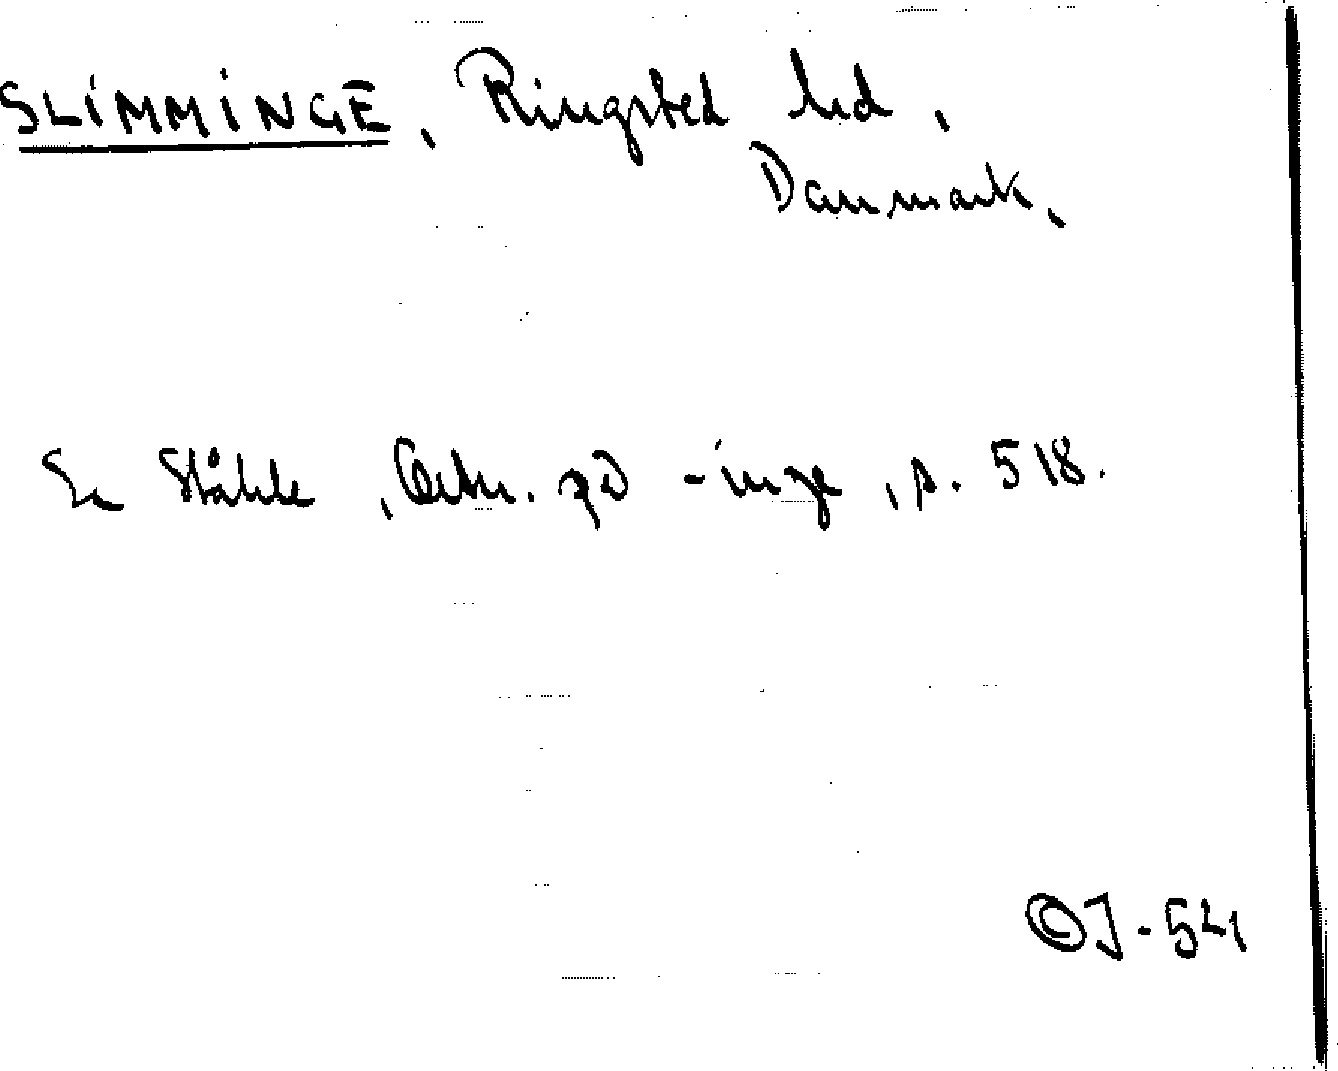 SLIMMINGE, Ringsted hd,
Danmark,
Se Ståhle, Ortn. på -inge, s. 518.
©J-54